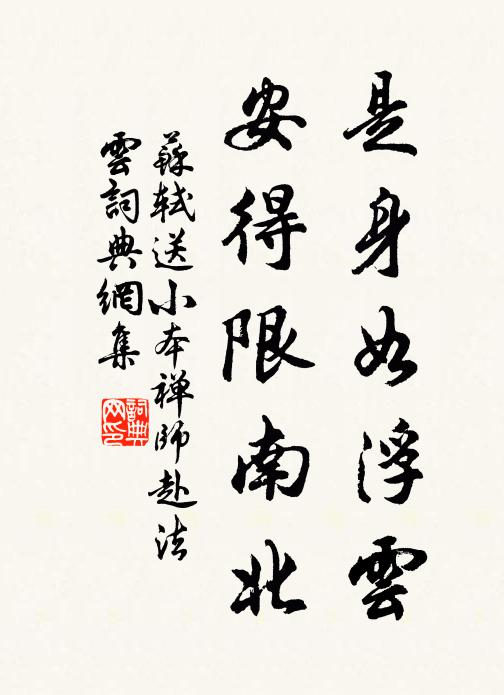 是身如浮雲
安得限南北
蘇軾送小本禅師赴法
雲詞典網集
詞典网印